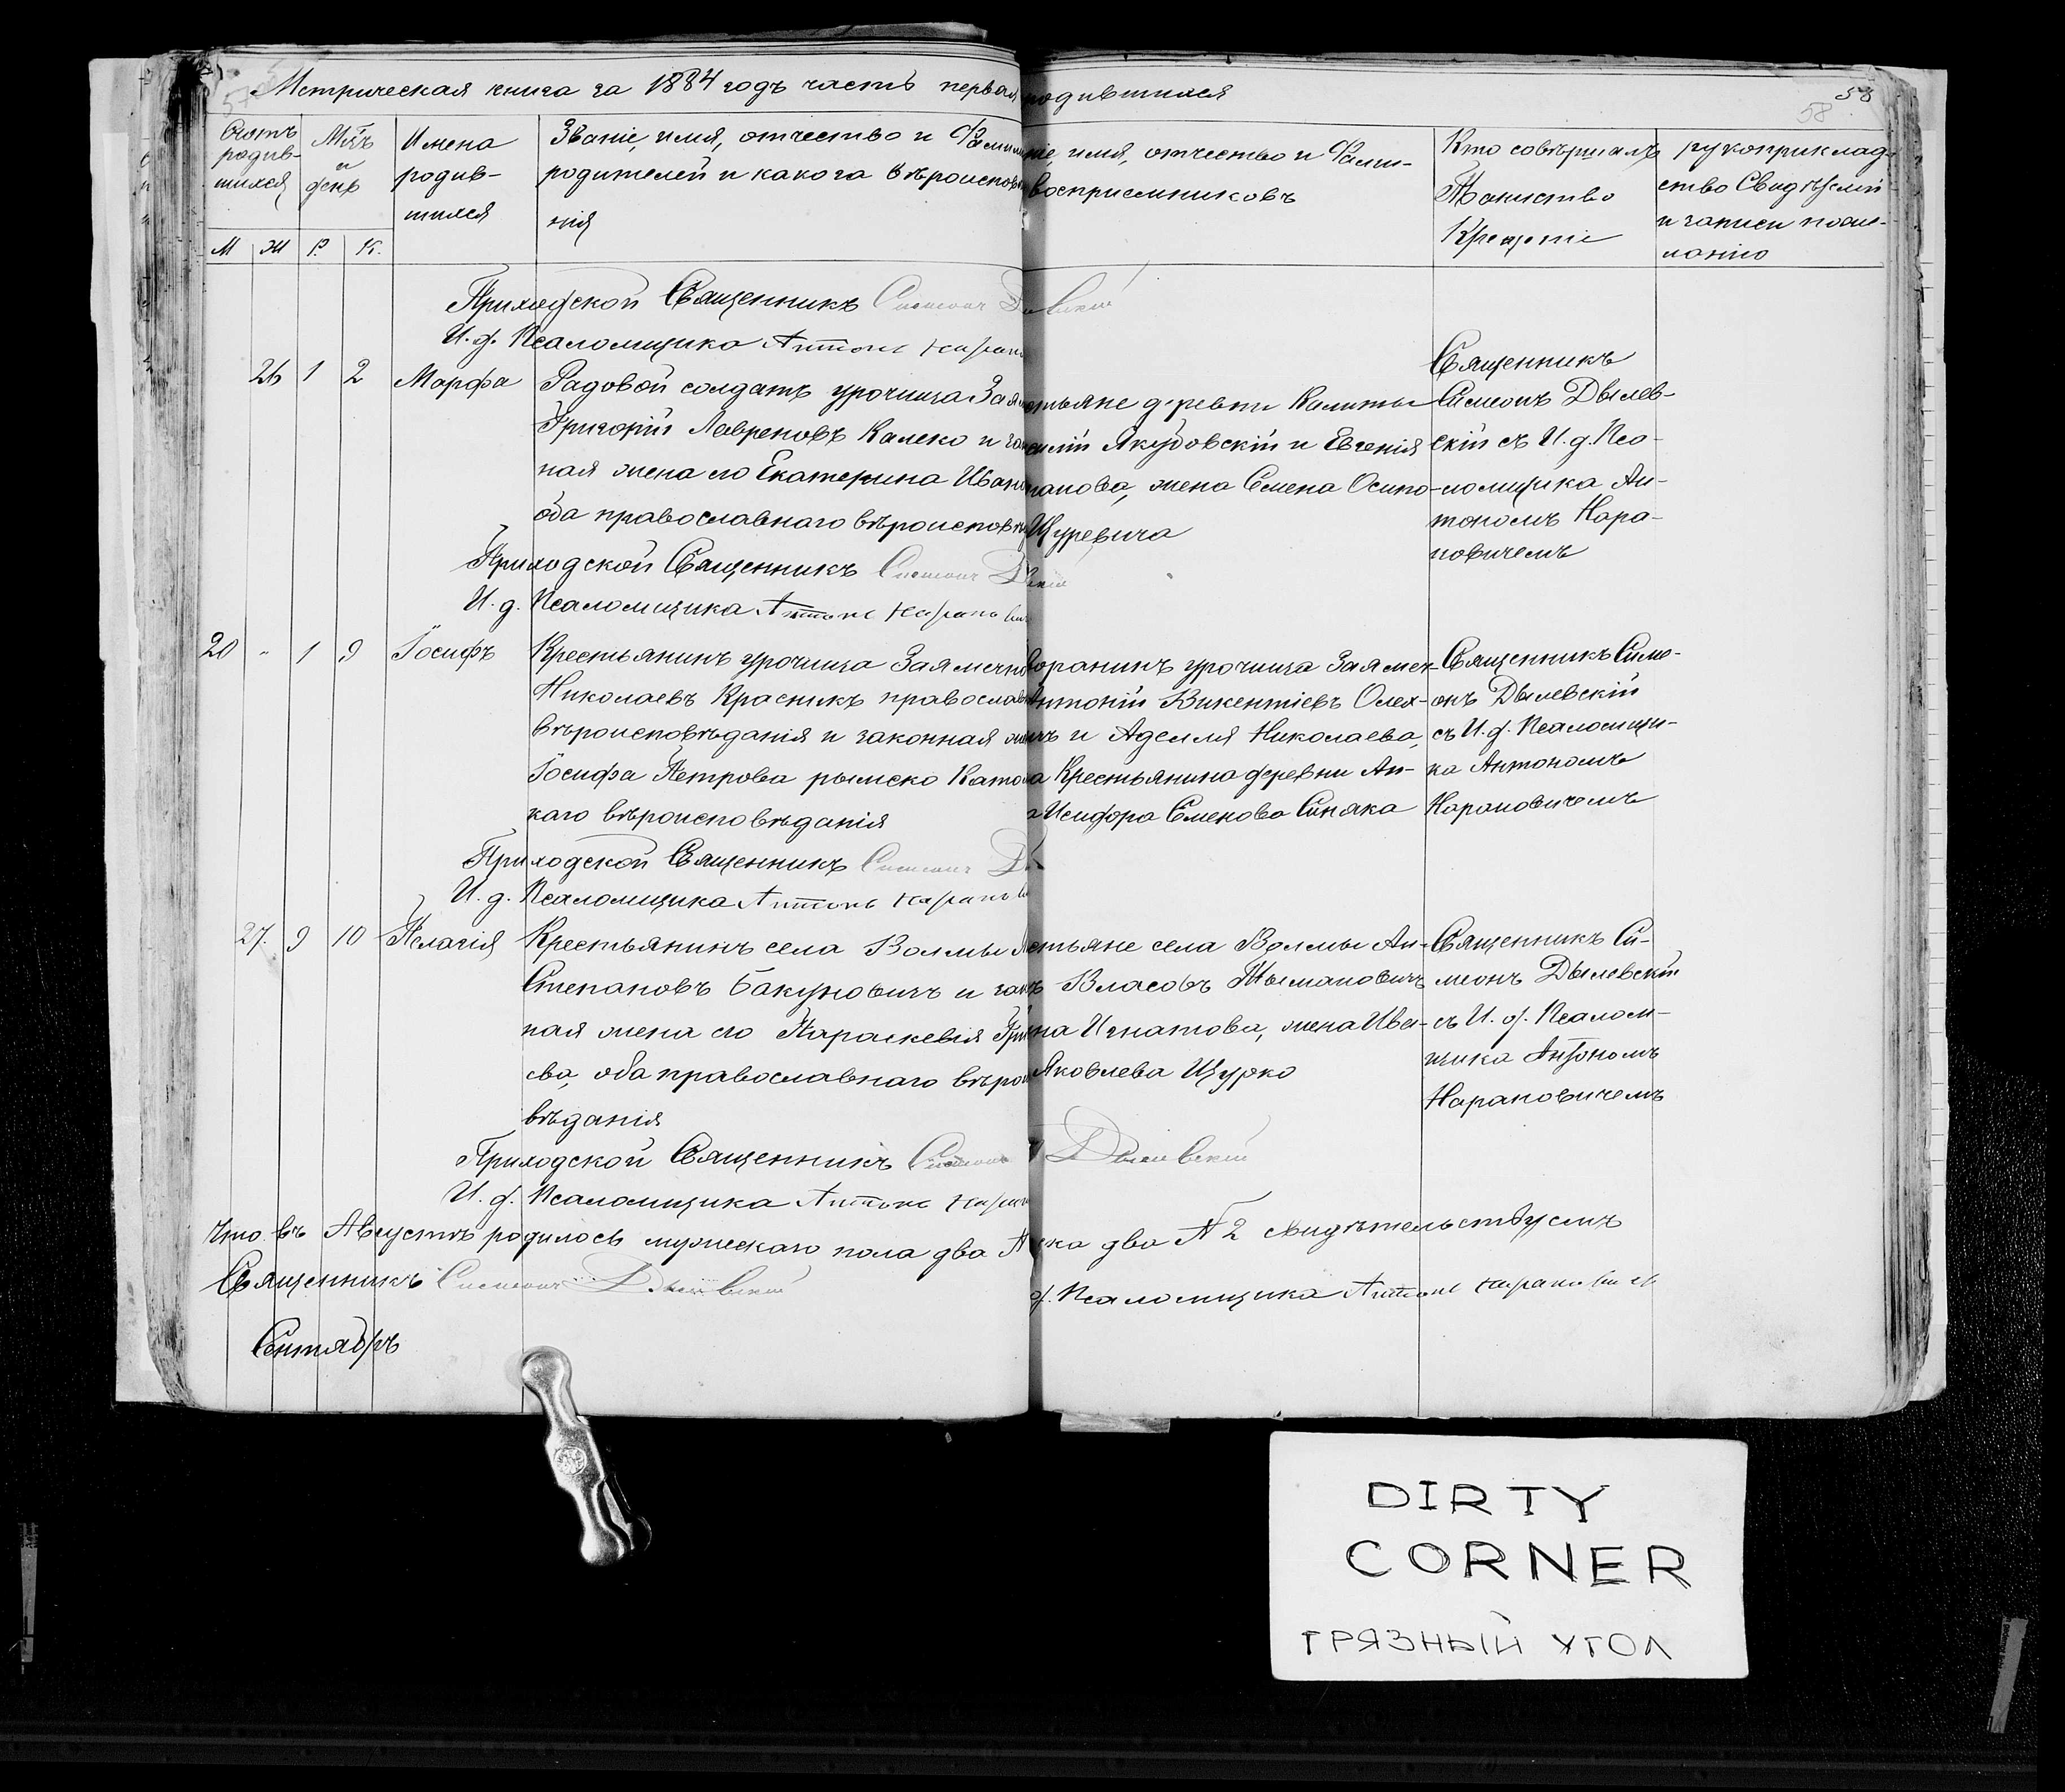 Метрическая книга за 1884 годъ часть первая родившихся
58
58
57
Счетъ родив-шихся
Мѣ.ъ и день
Имена родив-шихся
Званіе, имя, отчество и Фамилі
родителей и какога вѣроисповѣ
нія
ніе, имя, отчество и Фами-
воспріемниковъ
Кто совѣршалъ
Таинство
Крещеніе
рукоприклад-
ство Свидѣтелей
и записи по же-
ланію
М Ж Р. К.
Приходской Священникъ Симеонъ Дылевскій
И. д. Псаломщика Антонъ Наранов
26 1 2 Марфа
Радовой солдатъ урочища Заям
Григорій Лавреновъ Калеко и зако
ная жена его Екатерина Ивано
оба православнаго вѣроисповѣ
стьяне деревни Калиты
силій Якубовскій и Евгенія
панова, жена Семена Осипо-
Щуревича
Священникъ
Симеонъ Дылев-
скій съ И. д. Пса-
ломщика Ан-
тономъ Нара-
новичемъ
Приходской Священникъ Симеонъ Д
И. д. Псаломщика Антонъ Наранович
20 " 1 9 Іосифъ
Крестьянинъ урочища Заямечно
Николаевъ Красникъ православн
вѣроисповѣданія и законная жен
Іосифа Петрова рымско Катол
каго вѣроисповѣданія
воранинъ урочища Заямеч-
Антоній Викентіевъ Олех-
чъ и Аделля Николаева,
а Крестьянина деревни Ан-
Исидора Семенова Синяка
Священникъ Симе-
онъ Дылевскій
съ И. д. Псаломщи-
ка Антономъ
Нарановичемъ
Приходской Священникъ Симеонъ Д
И. д. Псаломщика Антонъ Наранов
27. 9 10 Пелагія
Крестьянинъ села Волмы
Степановъ Бакуновичъ и зак
ная жена его Параскевія Гри
ева, оба православнаго вѣрои
вѣданія
стьяне села Волмы Ан-
ъ Власовъ Тымановичъ
на Игнатова, жена Ива-
Яковлева Щурко
Священникъ Си-
меонъ Дылевскій
съ И. д. Псалом-
щика Антономъ
Нарановичемъ
Приходской Священникъ Симеонъ Дылевскій
И. д. Псаломщика Антонъ Наранов
Что въ Августѣ родилось мужескаго пола два № ска два № 2 свидѣтельствуемъ
Священникъ Симеонъ Дылевскій
д. Псаломщика Антонъ Нарановичъ
Сентябрь
DIRTY
CORNER
ГРЯЗНЫЙ УГОЛ